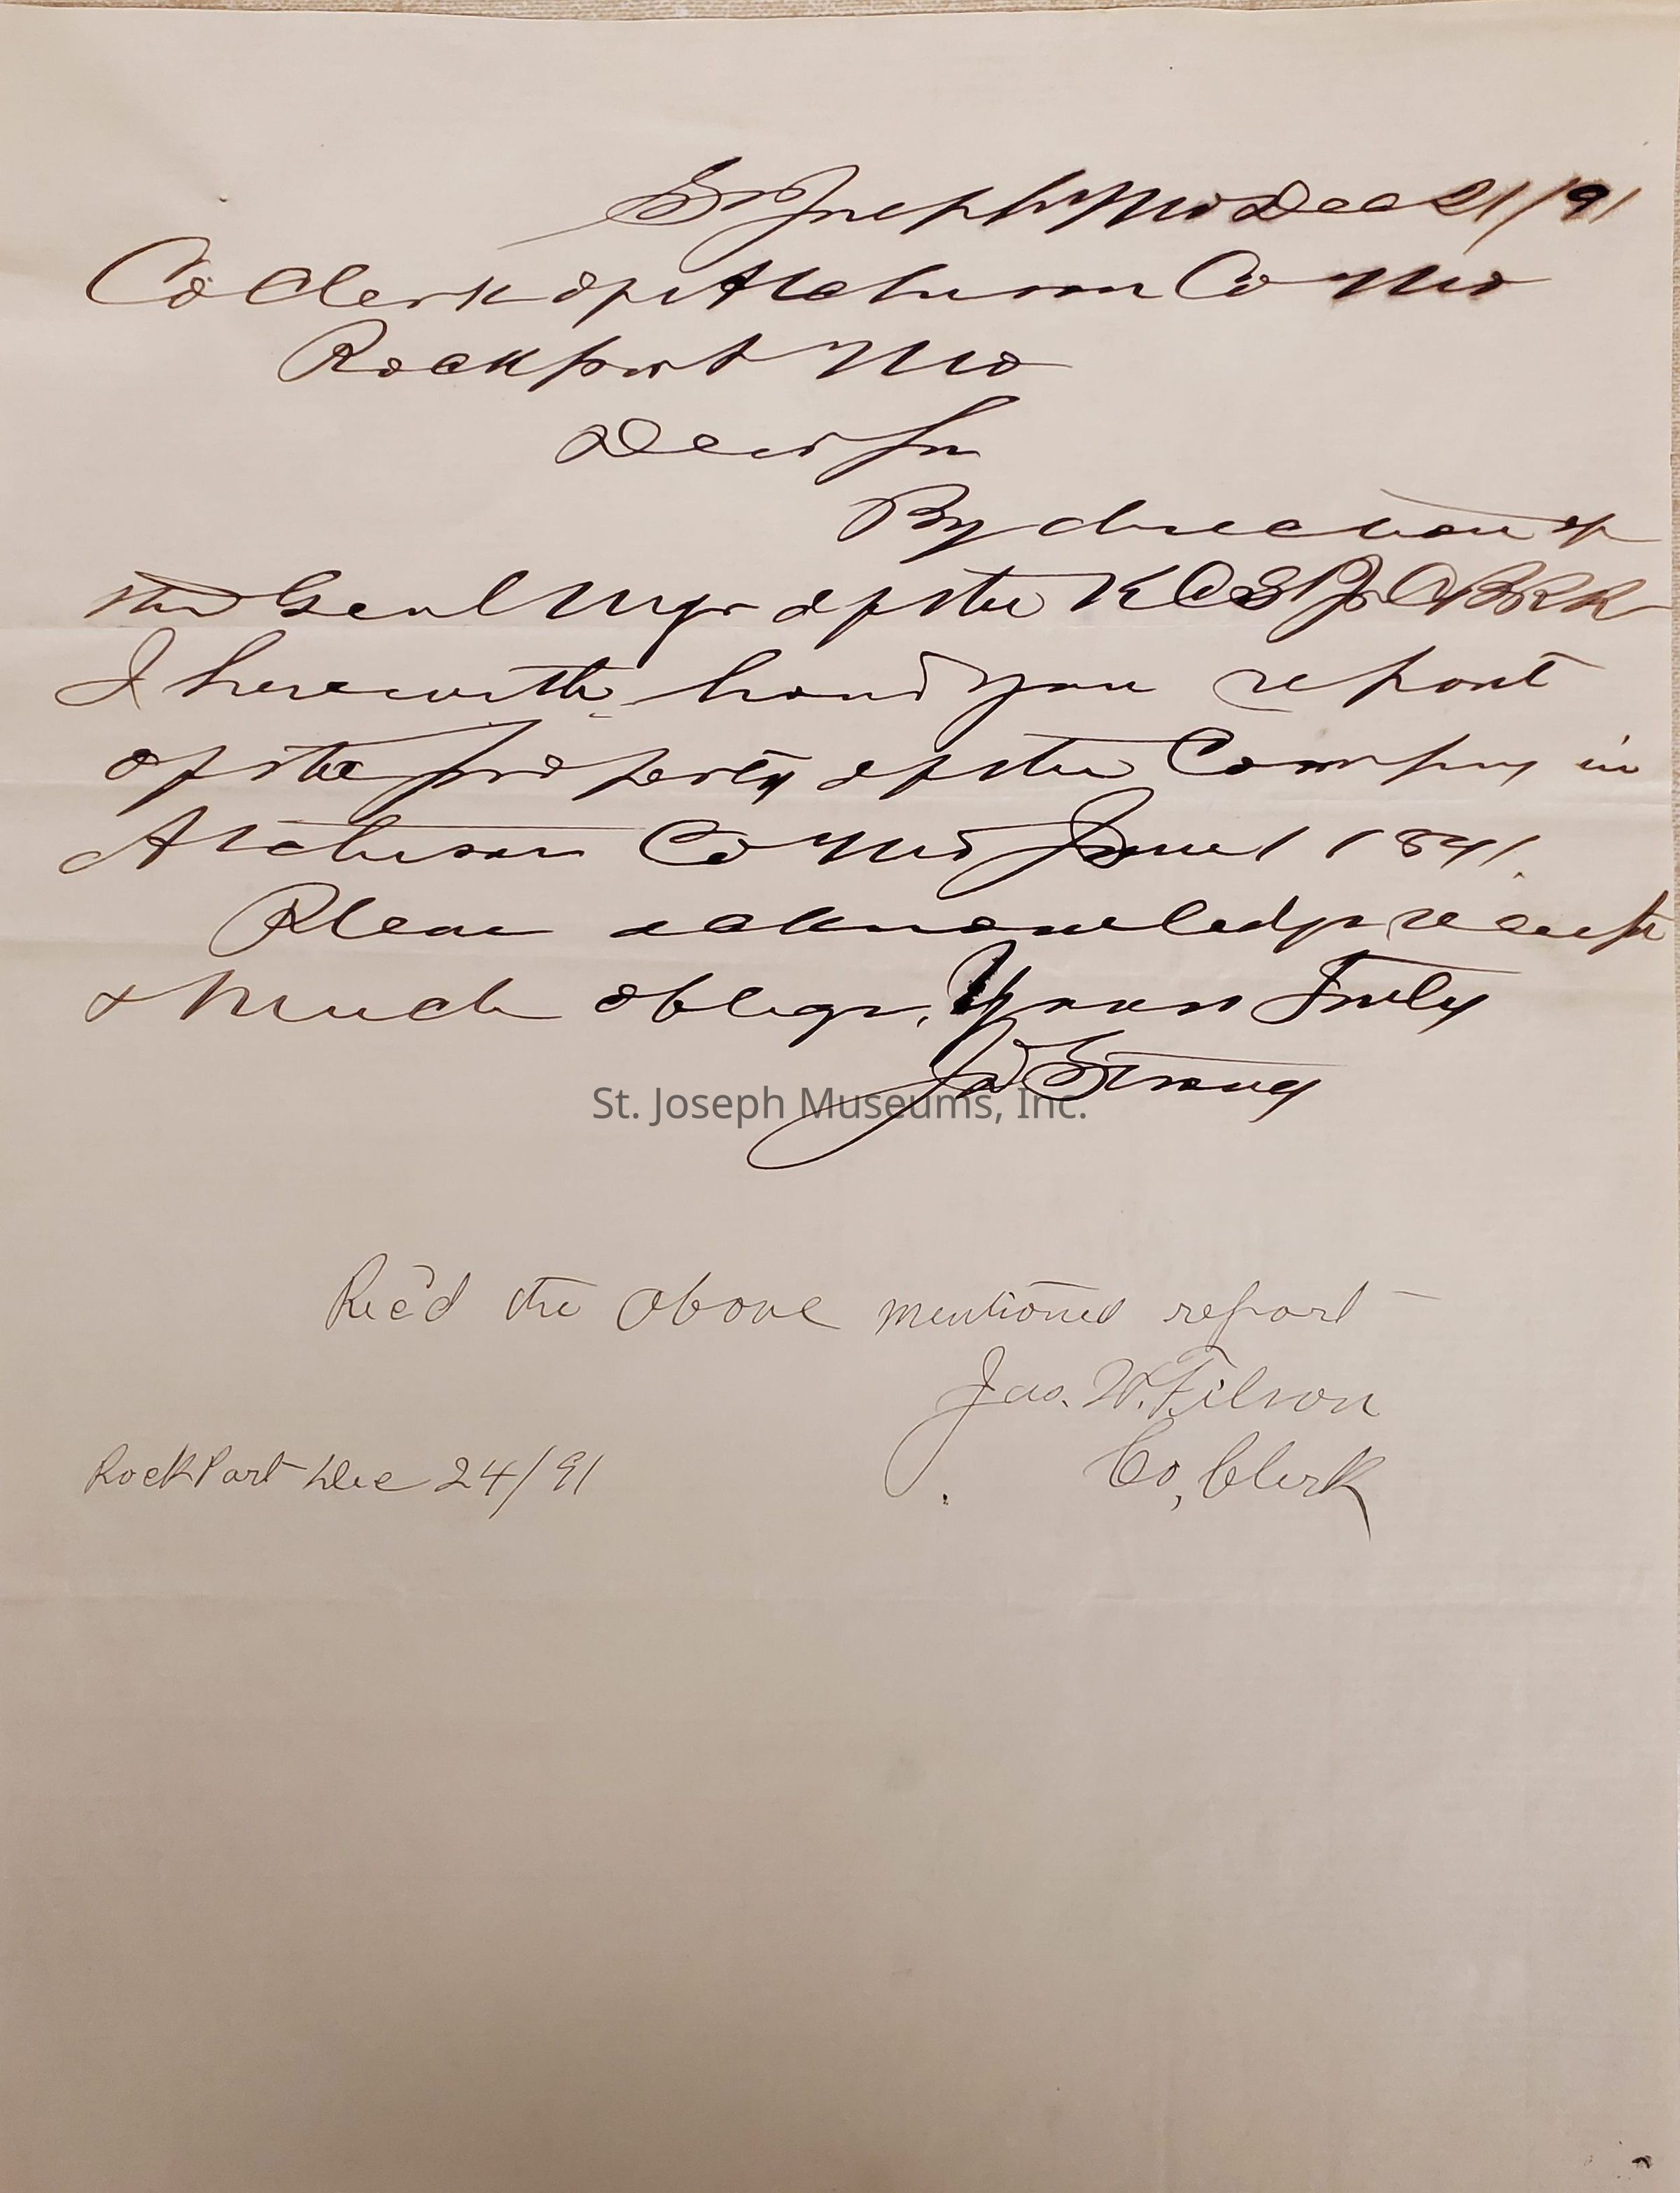 St Joseph Mo Dec 21/91
Co Clerk of Atchison Co Mo
Rockport Mo
Dear Sir
By direction of
the Genl Mgr of the K C St J & C B R R
I herewith hand you report
of the property of the Company in
Atchison Co Mo June 1 1891.
Please acknowledge receipt
& much oblige, Yours Truly
Strong
St. Joseph Museums, Inc.
Rec'd the above mentioned report
Jas. W. Filson
Co, Clerk
RockPort Dec 24/91